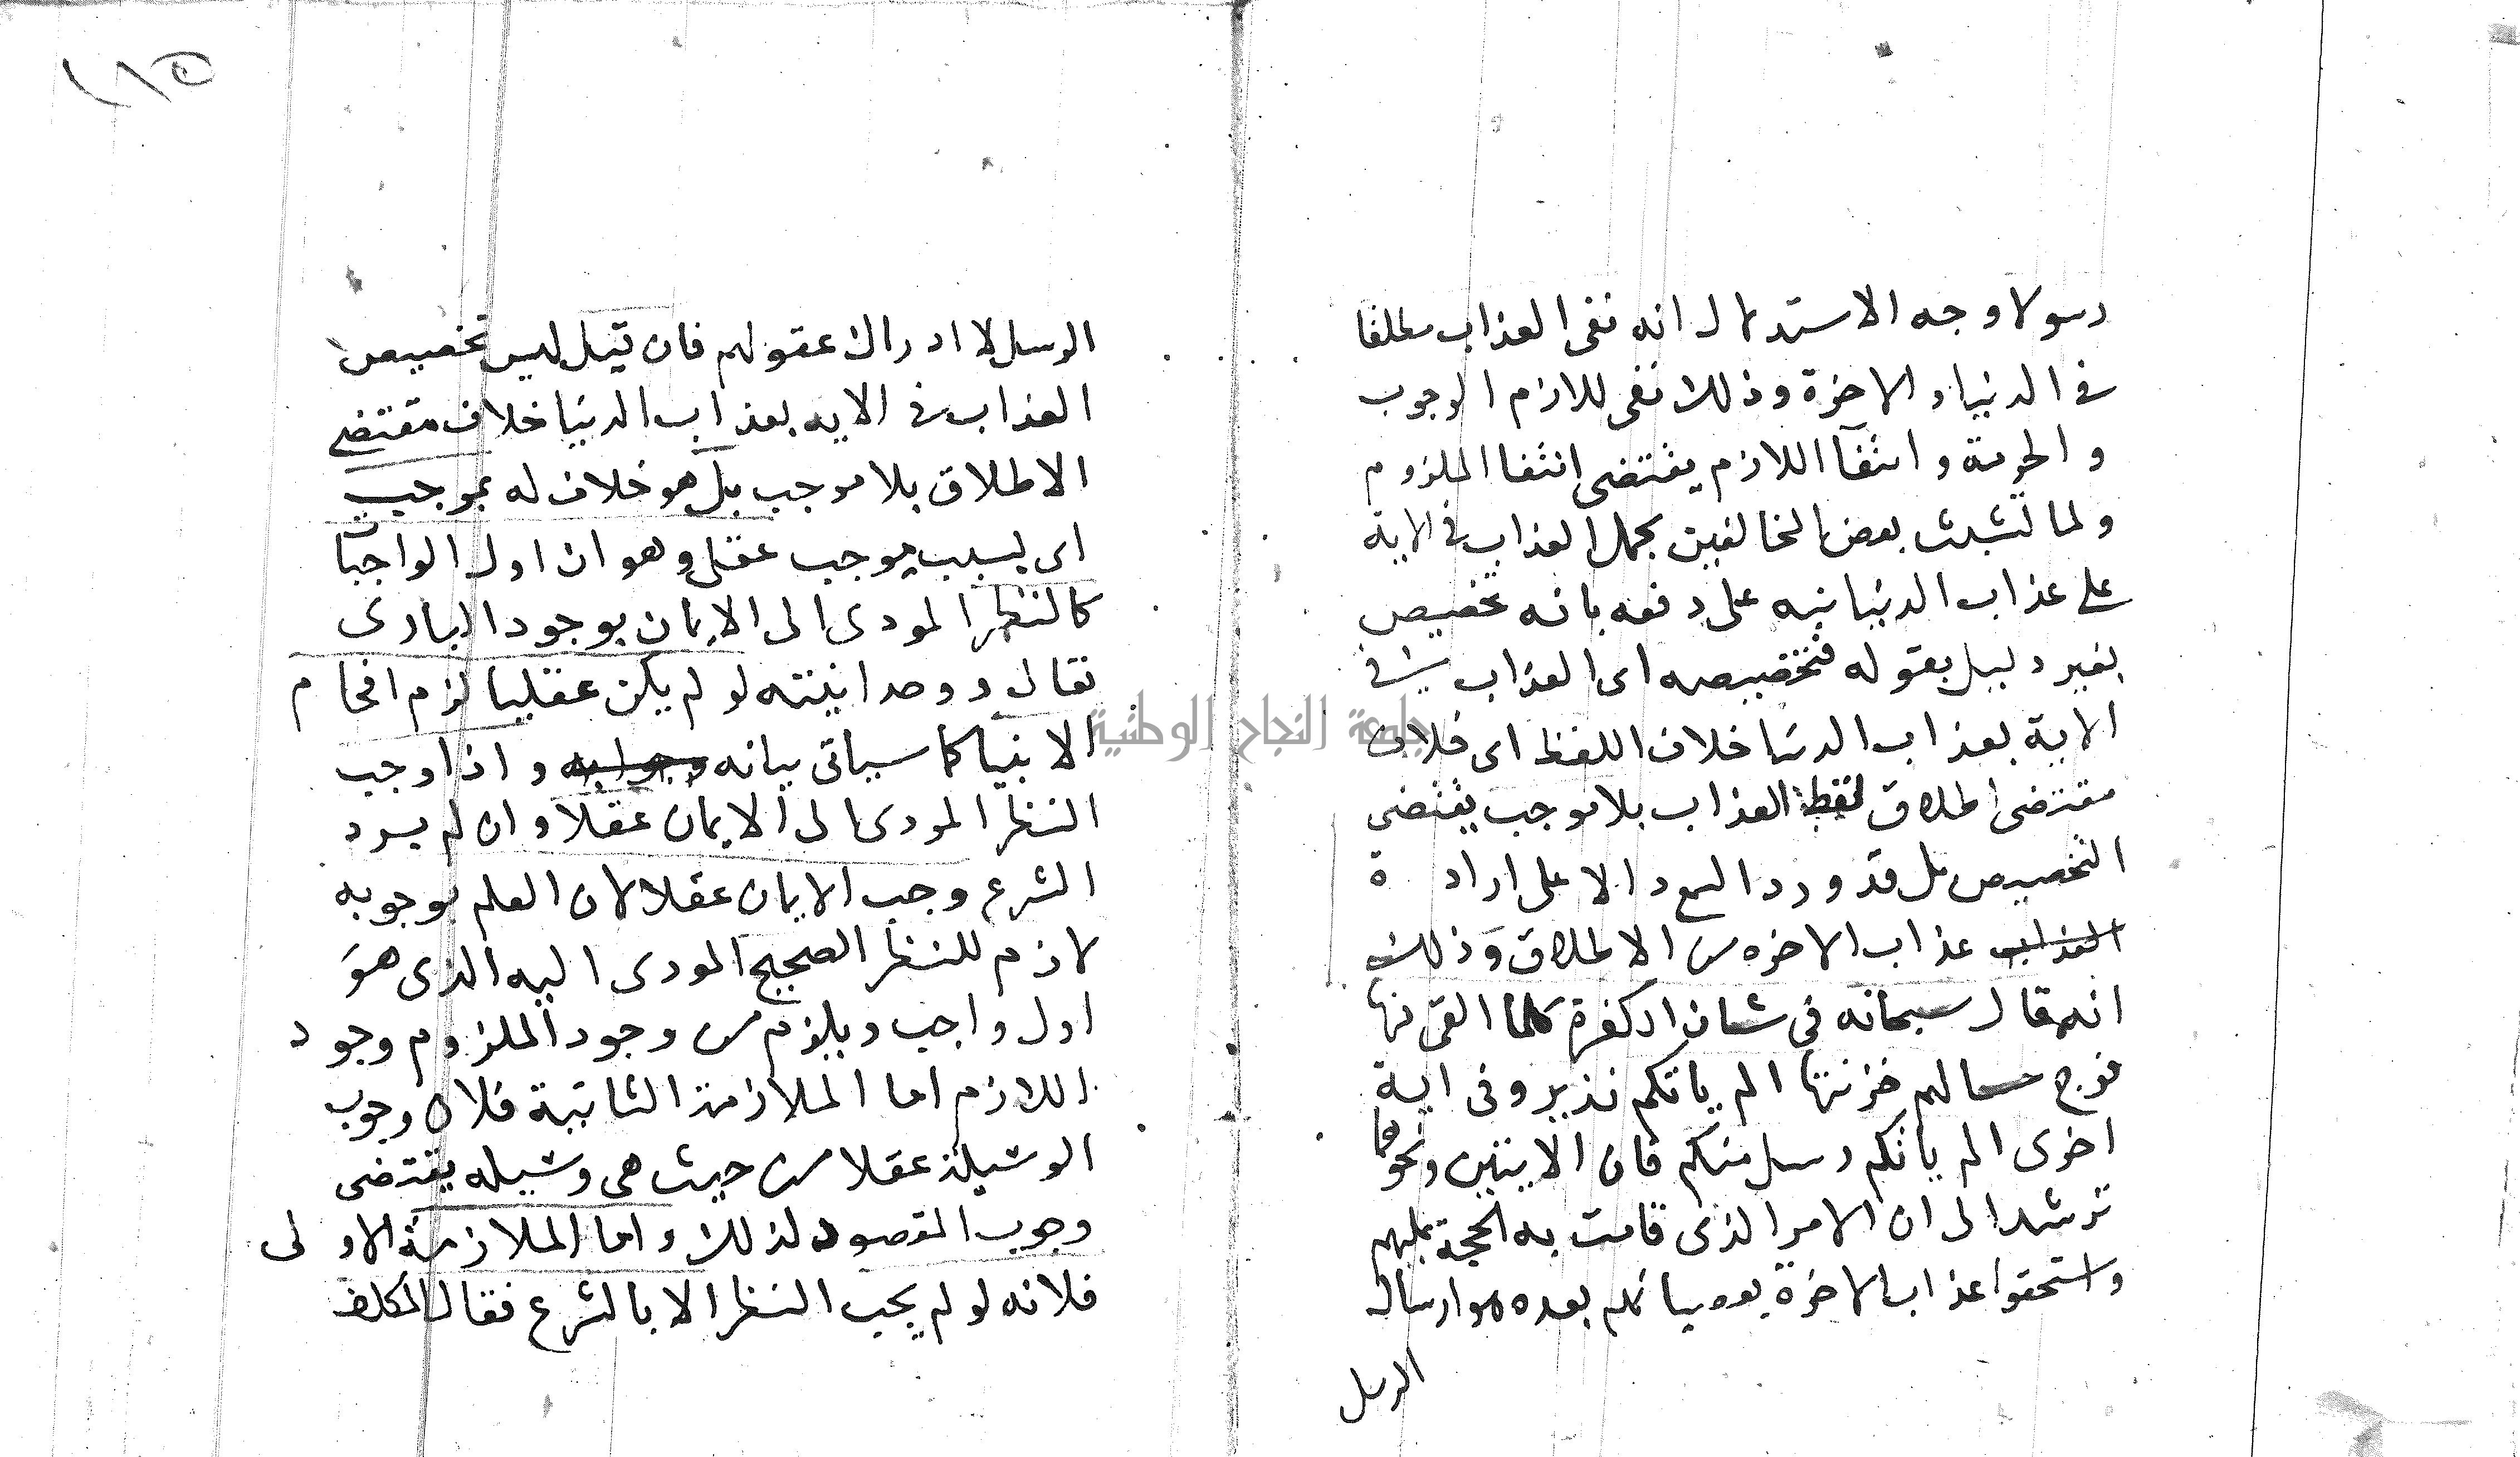 رسولا وجه الاستدلال انه نفى العذاب مطلقا
فى الدنيا والاخرة وذلك نفى للازم الوجوب
والحرمة وانتفآ اللازم يقتضى انتفا الملزوم
ولما تشبث بعض المخالفين بحمل العذاب فى الاية
على عذاب الدنيا نبه على دفعه بانه تخصيص
بغير دليل بقوله فتخصيصه اى العذاب فى
الاية بعذاب الدنيا خلاف اللفظ اى خلاف
مقتضى اطلاق لفظ العذاب بلا موجب يقتضى
التخصيص بل قد ورد السمع دالا على ارادة
العذاب عذاب الاخره من الاطلاق وذلك
انه قال سبحانه فى شان الكفرة كلما القى فيها
فوج سالهم خزنتها الم ياتكم نذير وفى اية
اخرى الم ياتكم رسل منكم فان الايتين ونحوهما
ترشد الى ان الامر الذى قامت به الحجة عليهم
واستحقوا عذاب الاخرة بعصيانهم بعده هو ارسال
الرسل
١١٥
الرسل لا ادراك عقولهم فان قيل ليس تخصيص
العذاب فى الايه بعذاب الدنيا خلاف مقتضى
الاطلاق بلا موجب بل هو خلاف له بموجب
اى بسبب موجب عقلى وهو ان اول الواجبات
كالنظر المودى الى الايمان بوجود البارى
تعالى ووحدانيته لو لم يكن عقليا لزم افحام
الانبيا كما سياتى بيانه وجوابه واذا وجب
النظر المودى الى الايمان عقلا وان لم يرد
الشرع وجب الايمان عقلا لان العلم بوجوبه
لازم للنظر الصحيح المودى اليه الذى هو
اول واجب ويلزم من وجود الملزوم وجود
اللازم اما الملازمة الثانية فلان وجوب
الوسيلة عقلا من حيث هى وسيله يقتضى
وجوب المقصود لذلك واما الملازمة الاولى
فلانه لو لم يجب النظر الا بالشرع فقال المكلف
جامعة النجاح الوطنية